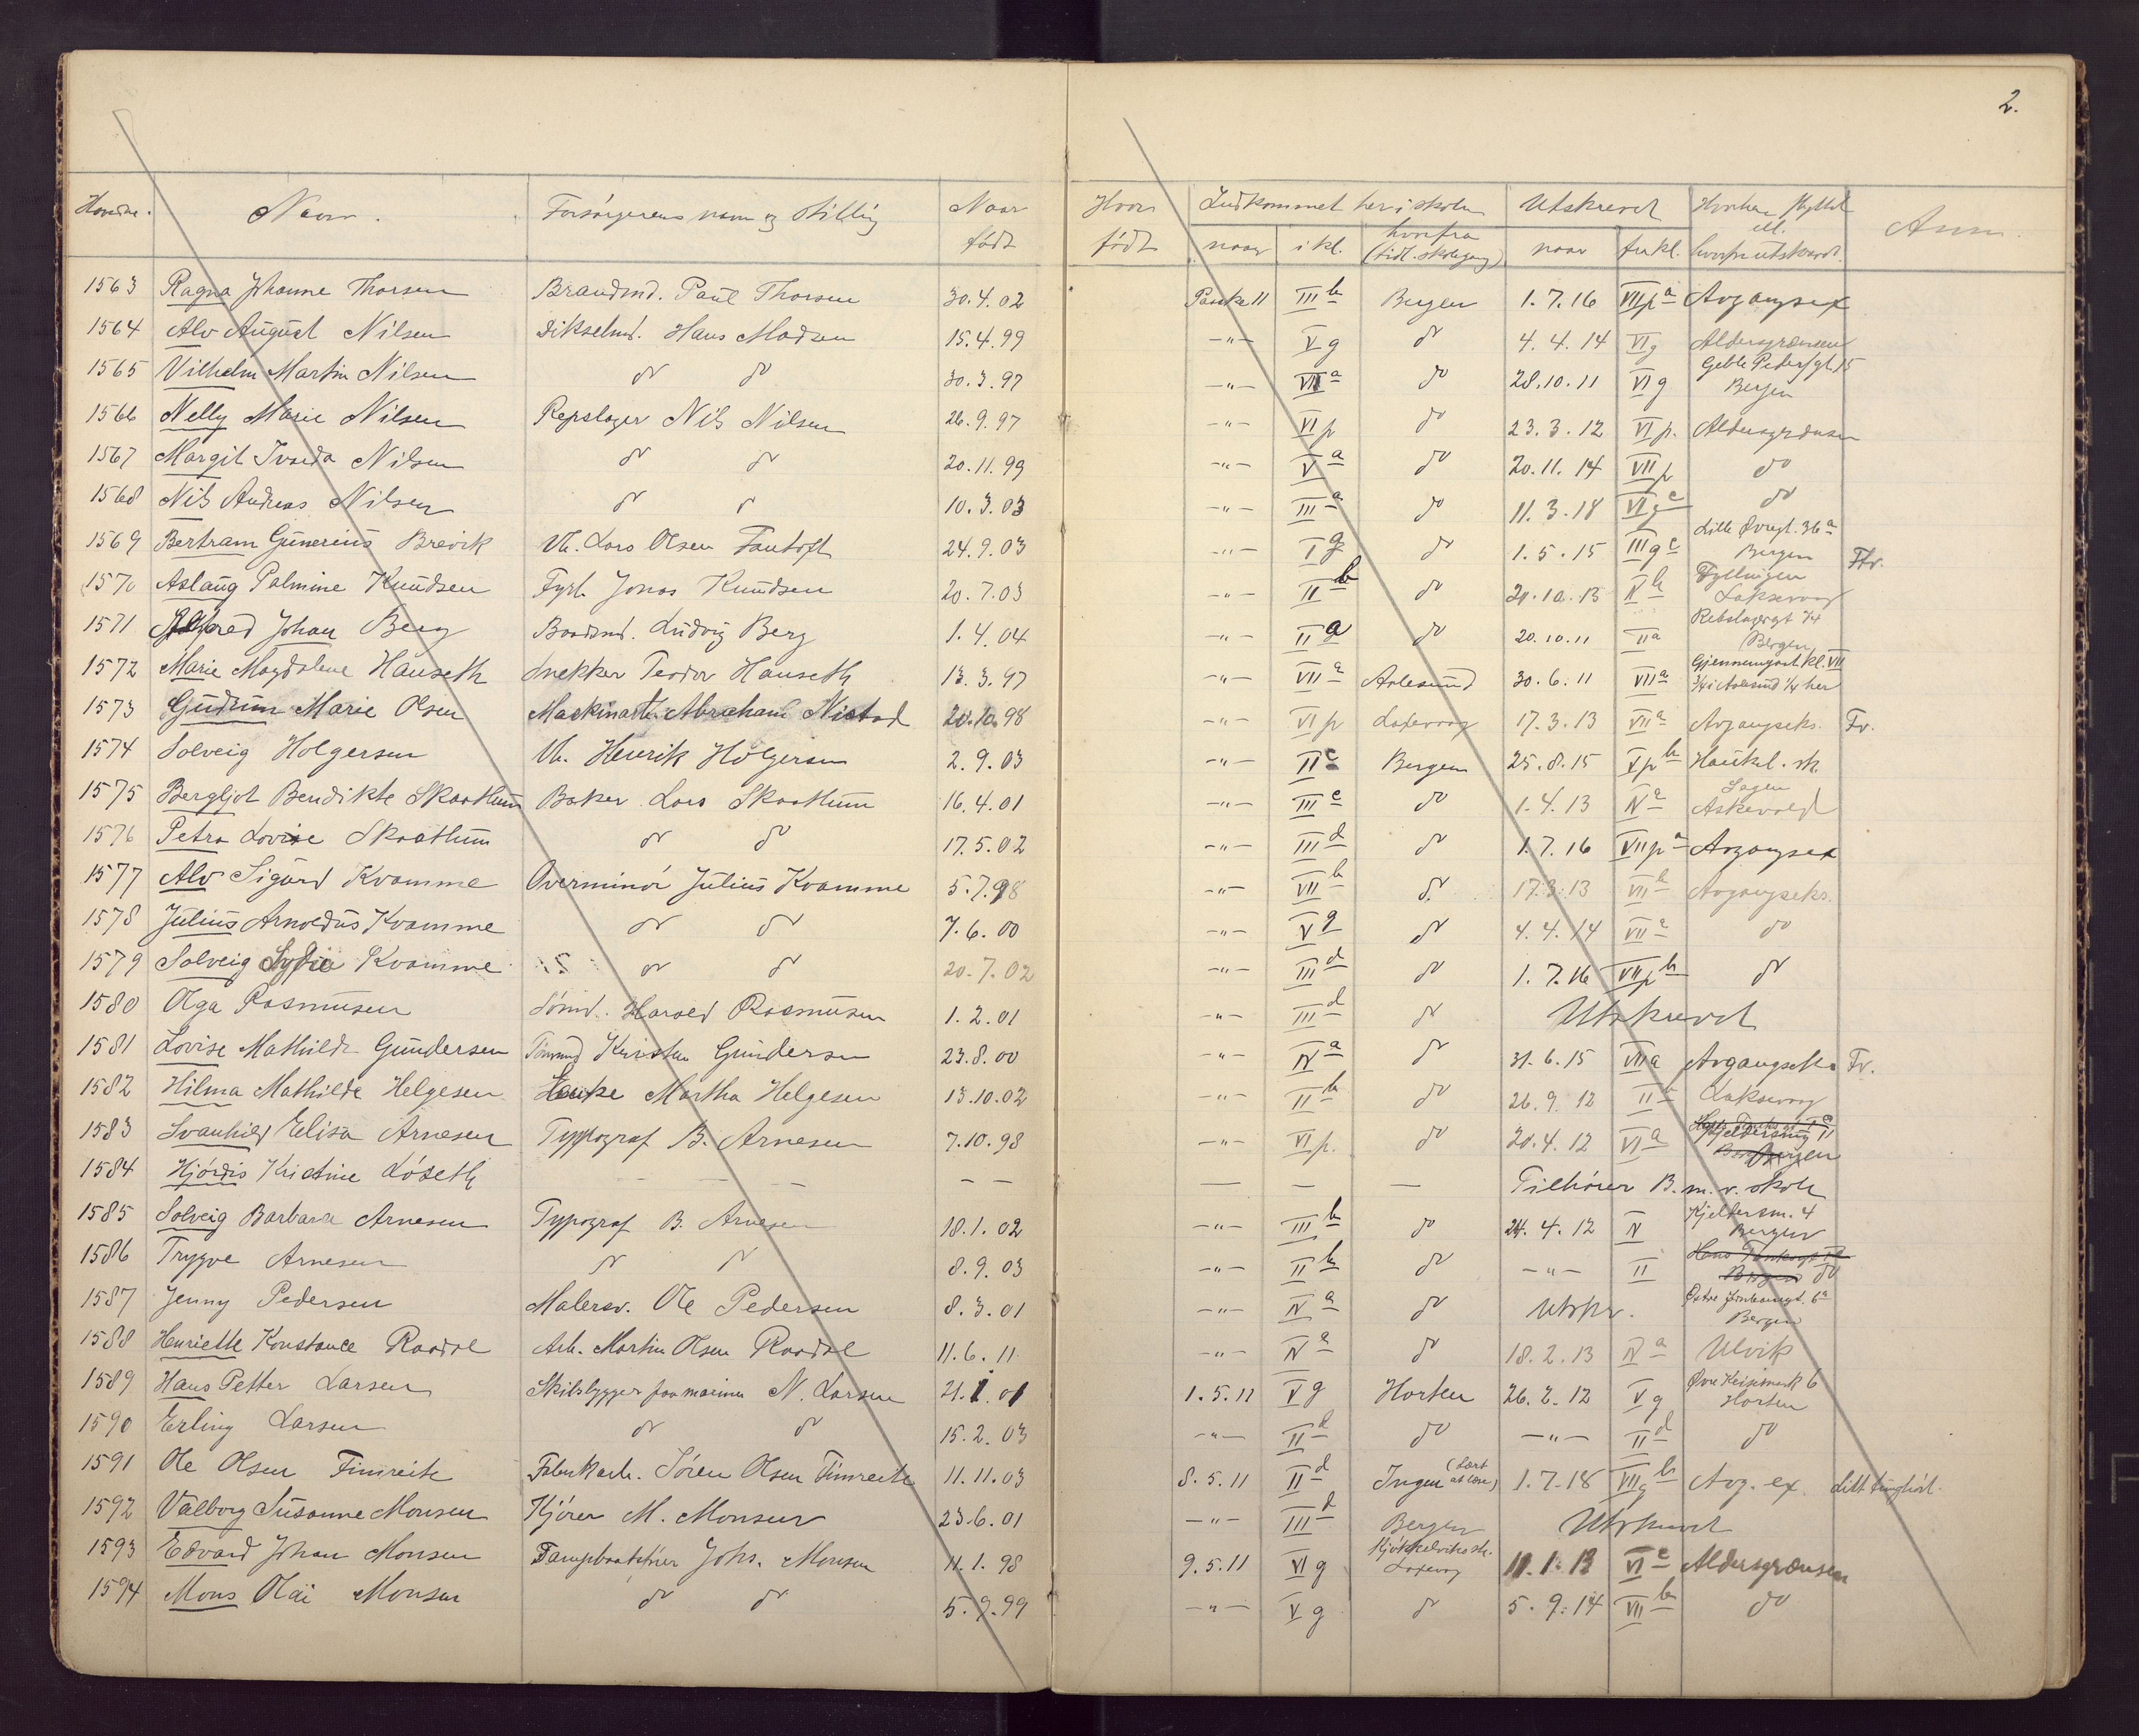 2.
Navn. Forsørgerens navn og stilling Naar født Hvor født Indkommet her i skolen naar i kl. hvorfra (tidl. skolegang) Utskrevet naar fra kl. ell. hvorfor utskrevet. Anm.
1563 Ragna Johanne Thorsen Brandmd. Paul Thorsen 30.4.02 Paaske 11 III b Bergen 1.7.16 VII p a Avgangsex
1564 Alv August Nilsen Hans Madsen 15.4.99 -"- V g do 4.4.14 VI g Aldersgrænsen
1565 Vilhelm Martin Nilsen do do 30.3.97 -"- VII a do 28.10.11 VI g Geble Peders gt. 15 Bergen
1566 Nelly Marie Nilsen Repslager Nils Nilsen 26.9.97 -"- VI p do 23.3.12 VI p. Aldersgrænsen
1567 Margit Nilsen do do 20.11.99 -"- V a do 20.11.14 VII p do
1568 Nils Andreas Nilsen do do 10.3.03 -"- III a do 11.3.18 VI g c do
1569 Bertram Gunerius Brevik Vh. Lars Olsen Fantoft 24.9.03 -"- I g do 1.5.15 III g c Lille Øvregt. 36 a Bergen Fr.
1570 Aslaug Palmine Knudsen Fyrb. Jonas Knudsen 20.7.03 -"- II b do 21.10.13 IV b Fyllingen Laksevaag
1571 Alfred Johan Berg Baadsmd. Ludvig Berg 1.4.04 -"- II a do 20.10.11 II a Rebslagergt 14 Bergen
1572 Marie Magdalene Hauseth Snekker Teodor Hauseth 13.3.97 -"- VII a Aalesund 30.6.11 VII a Gjennemgaat kl. VII ¾ i Aalesund ¼ her
1573 Gudrun Marie Olsen Maskinarb. Abraham Nistad 20.10.98 -"- VI p Laxevaag 17.3.13 VII a Avgangseks. Fr.
1574 Solveig Holgersen Vh. Henrik Holgersen 2.9.03 -"- II c Bergen 25.8.15 V p b Haukel. sk.
1575 Bergljot Bendikte Skaathun Baker Lars Skaathun 16.4.01 -"- III c do 1.4.13 IV a Askevold
1576 Petra Lovise Skaathun do do 17.5.02 -"- III d do 1.7.16 VII p a Avgangsex
1577 Alv Sigurd Kvamme Overminør Julius Kvamme 5.7.98 -"- VII b do 17.3.13 VII b Avgangseks.
1578 Julius Arnoldus Kvamme do do 7.6.00 -"- V g do 4.4.14 VII a do
1579 Solveig Sofie Kvamme do do 20.7.02 -"- III d do 1.7.16 VII p b do
1580 Olga Rasmussen Sømd. Harald Rasmussen 1.2.01 -"- III d do Utskrevet
1581 Lovise Mathilde Gundersen Kristen Gundersen 23.8.00 -"- IV a do 31.6.15 VII a Avgangseks Fr.
1582 Hilma Mathilde Helgesen Enke Martha Helgesen 13.10.02 -"- II b do 26.9.12 II Laksevaag
1583 Svanhild Elisa Arnesen Typograf B. Arnesen 7.10.98 -"- VI p. do 20.4.12 VI a Kjeldersmug 11 Bergen
1584 Hjørdis Kristine Løseth - - - - - - - - Tilhører B. m. v. skole
1585 Solveig Barbara Arnesen Typograf B. Arnesen 18.1.02 -"- III b do 24.4.12 IV Kjeldersm. 4 Bergen
1586 Trygve Arnesen do do 8.9.03 -"- II b do -"- II Hans Tanksgt Bergen do
1587 Jenny Pedersen Malersv. Ole Pedersen 8.3.01 -"- IV a do Utskr. 6 a Bergen
1588 Henriette Konstance Raadal Arb. Martin Olsen Raadal 11.6.11 -"- IV a do 18.2.13 IV a Ulvik
1589 Hans Petter Larsen Skibsbygger paa marinen N. Larsen 21.1.01 1.5.11 V g Horten 26.2.12 V g Øvre Keisemark 6 Horten
1590 Erling Larsen do do 15.2.03 -"- II d do -"- II d do
1591 Ole Olsen Fimreite Fabrikarb. Søren Olsen Fimreite 11.11.03 8.5.11 II d Ingen (Lært at læse) 1.7.18 VII g b Avg. ex. Litt tunghørt.
1592 Valborg Susanne Monsen Kjører M. Monsen 23.6.01 -"- III d Bergen Utskrevet
1593 Edvard Johan Monsen Dampbaatfører Johs. Monsen 11.1.98 9.5.11 VI g Kjøkkelviks sk. Laxevaag 11.1.13 VI c Aldersgrænsen
1594 Mons Olai Monsen do do 5.9.99 -"- V g do 5.9.14 VII b do